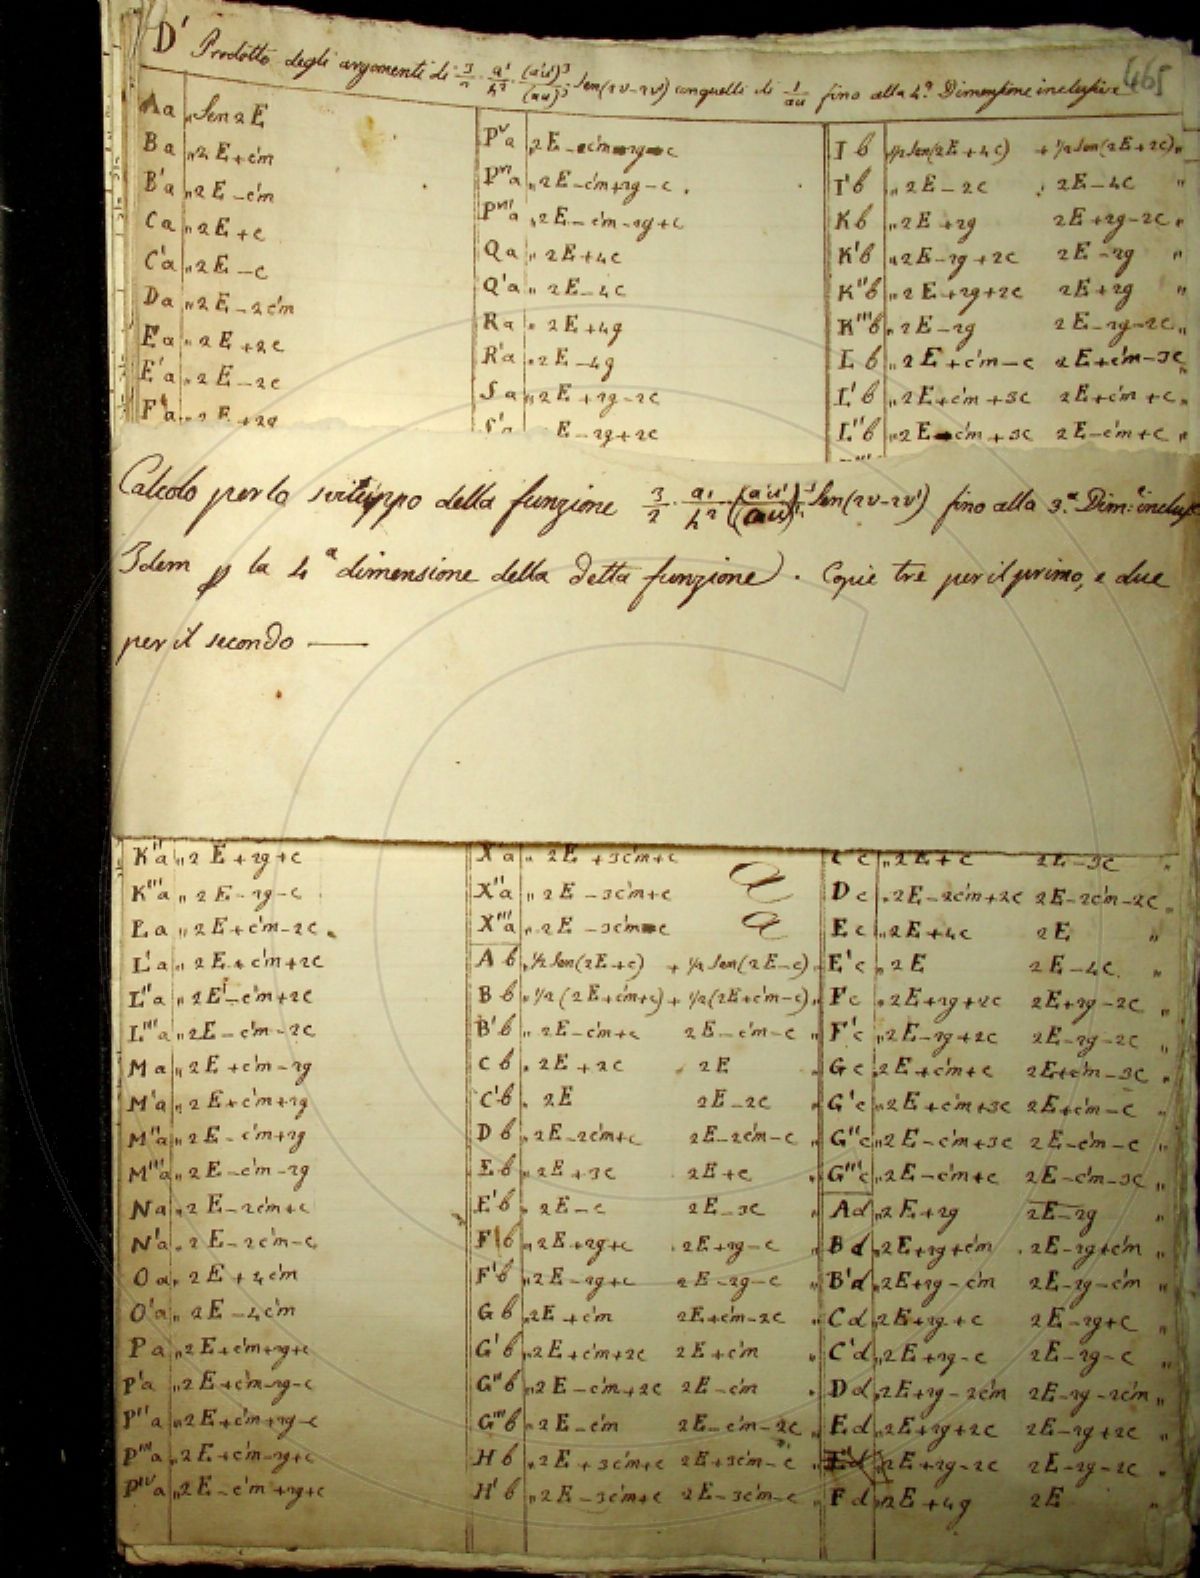 D' Prodotto degli argomenti di 3/2 · a'/h² · (a'u')³/(au)³ Sen(2v-2v') con quelli di 1/au fino alla 4.ª Dimensione inclusive
465
Aa „Sen 2E
Ba „2E+c'm
B'a „2E-c'm
Ca „2E+c
C'a „2E-c
Da „2E-2c'm
Ea „2E+2c
E'a „2E-2c
Fa „2E+2g
P^v a „2E-c'm-2g-c
P^vi a „2E-c'm+2g-c
P^vii a „2E-c'm-2g+c
Qa „2E+4c
Q'a „2E-4c
Ra „2E+4g
R'a „2E-4g
Sa „2E+2g-2c
S'a 2E-2g+2c
Ib ½Sen(2E+4c) +½Sen(2E+2c)„
I'b „2E-2c 2E-4c „
Kb „2E+2g 2E+2g-2c „
K'b „2E-2g+2c 2E-2g „
K''b „2E+2g+2c 2E+2g „
K'''b „2E-2g 2E-2g-2c „
Lb „2E+c'm-c 2E+c'm-3c „
L'b „2E+c'm+3c 2E+c'm+c „
L''b „2E-c'm+3c 2E-c'm+c „
Calcolo per lo sviluppo della funzione 3/2 · a'/h² (a'u')³/(au)³ Sen(2v-2v') fino alla 3.ª Dim.e inclus
Idem p la 4ª dimensione della detta funzione. Copie tre per il primo, e due
per il secondo —
K''a „2E+2g+c
K'''a „2E-2g-c
La „2E+c'm-2c
L'a „2E+c'm+2c
L''a „2E-c'm+2c
L'''a „2E-c'm-2c
Ma „2E+c'm-2g
M'a „2E+c'm+2g
M''a „2E-c'm+2g
M'''a „2E-c'm-2g
Na „2E-2c'm+c
N'a „2E-2c'm-c
Oa „2E+4c'm
O'a „2E-4c'm
Pa „2E+c'm+2g+c
P'a „2E+c'm-2g-c
P''a „2E+c'm+2g-c
P'''a „2E+c'm-2g+c
P^IV a „2E-c'm+2g+c
X'a „2E+3c'm+c
X''a „2E-3c'm+c a
X'''a „2E-3c'm-c a
Ab „½Sen(2E+c) +½Sen(2E-c)„
Bb „½(2E+c'm+c)+½(2E+c'm-c)„
B'b „2E-c'm+c 2E-c'm-c „
Cb „2E+2c 2E „
C'b „2E 2E-2c „
Db „2E-2c'm+c 2E-2c'm-c „
Eb „2E+3c 2E+c „
E'b „2E-c 2E-3c „
Fb „2E+2g+c 2E+2g-c „
F'b „2E-2g+c 2E-2g-c „
Gb „2E+c'm 2E+c'm-2c „
G'b „2E+c'm+2c 2E+c'm „
G''b „2E-c'm+2c 2E-c'm „
G'''b „2E-c'm 2E-c'm-2c „
Hb „2E+3c'm+c 2E+3c'm-c „
H'b „2E-3c'm+c 2E-3c'm-c „
C'c „2E+c 2E-3c „
Dc „2E-2c'm+2c 2E-2c'm-2c „
Ec „2E+4c 2E „
E'c „2E 2E-4c „
Fc „2E+2g+2c 2E+2g-2c „
F'c „2E-2g+2c 2E-2g-2c „
Gc „2E+c'm+c 2E+c'm-3c „
G'c „2E+c'm+3c 2E+c'm-c „
G''c „2E-c'm+3c 2E-c'm-c „
G'''c „2E-c'm+c 2E-c'm-3c „
Ad „2E+2g 2E-2g „
Bd „2E+2g+c'm 2E-2g+c'm „
B'd „2E+2g-c'm 2E-2g-c'm „
Cd „2E+2g+c 2E-2g+c „
C'd „2E+2g-c 2E-2g-c „
Dd „2E+2g-2c'm 2E-2g-2c'm „
Ed „2E+2g+2c 2E-2g+2c „
E'd „2E+2g-2c 2E-2g-2c „
Fd „2E+4g 2E „